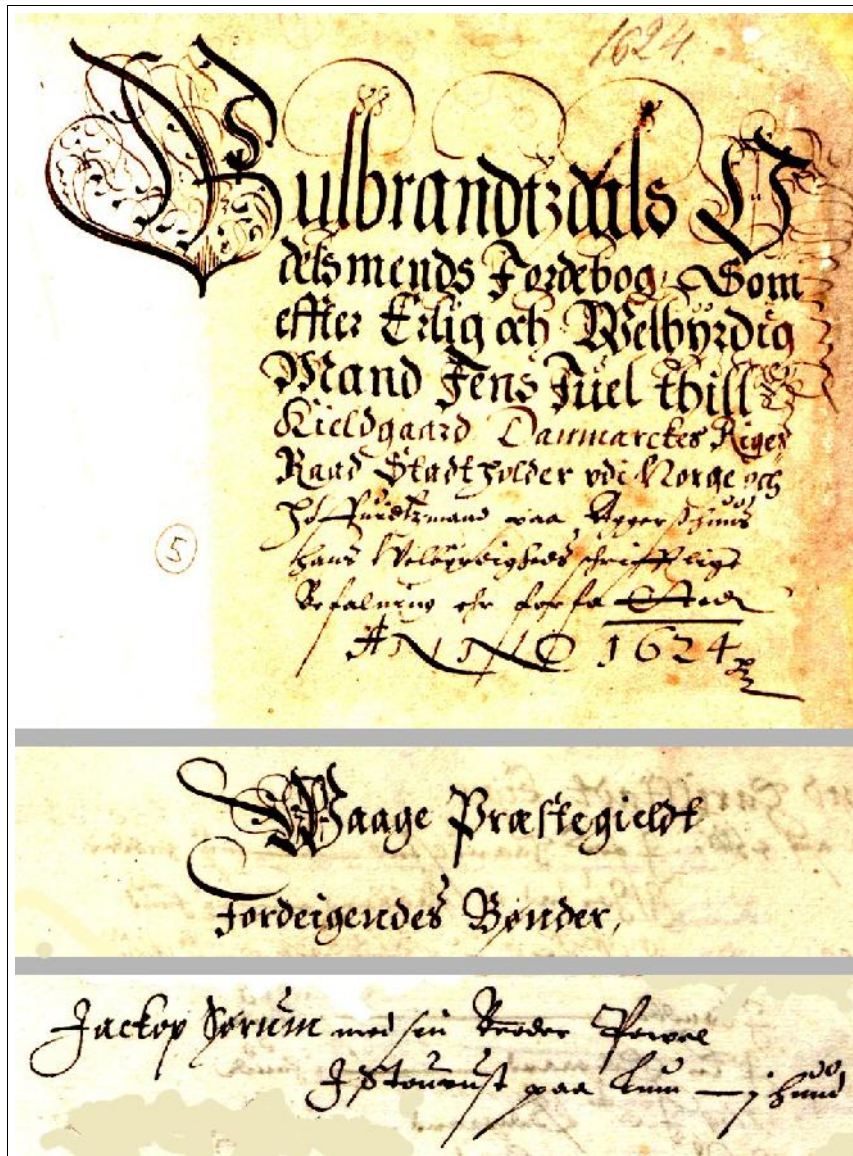 1624.
Gulbrandtzdals O
delsmends Jordebog, Som
effter Erlig och Welbÿrdig
Mand Jens Juel thill
Kieldgaard Danmarckes Riges
Raad Stadtholder vdi Norge och
Høffuidtzmand paa Aggerszhuus
hans Welbyrdigheds schrifftlige
Befalning ehr forfa
ANNO 1624
5
Waage Præstegieldt
Jordeigendes Bønder,
Jackop Sørum med sin Broder Powel
paa Lum — j hud